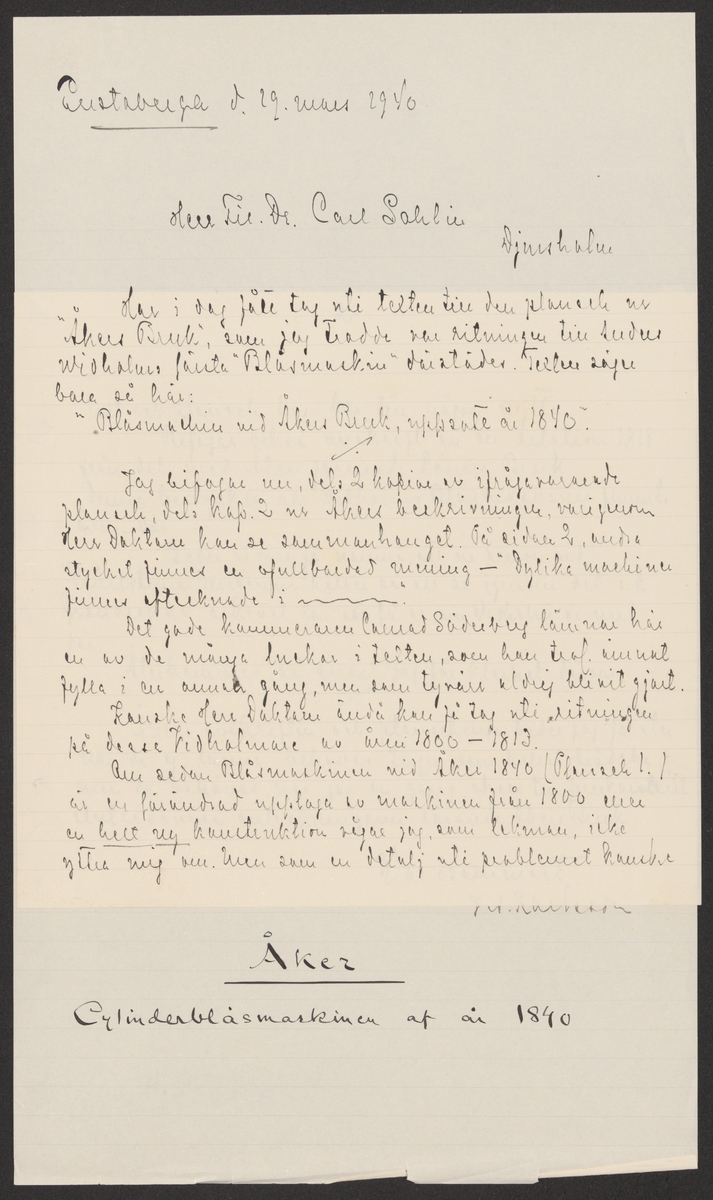 d. 29. mars 1940
Herr Fil. Dr. Carl Sahlin
Djursholm
Har i dag fått tag uti texten till den plansch ur
"Åkers Bruk", som jag trodde var ritningen till Anders
Widholms första "Blåsmaskin" därstädes. Texten säger
bara så här:
"Blåsmachin vid Åkers Bruk, uppsatt år 1840".
Jag bifogar nu, dels 2 kopior av ifrågavarande
plansch, dels kap. 2 ur Åkers beskrivningen, varigenom
Herr Doktorn kan se sammanhanget. På sidan 2, andra
stycket finnes en ofullbordad mening — "Dylika machiner
finnes aftecknade i ———".
Det gode kamreraren Conrad Söderberg lämnar här
en av de många luckor i texten, som han trol. ämnat
fylla i en annan gång, men som tyvärr aldrig blivit gjort.
Kanske Herr Doktorn ändå kan få tag uti ritningen
på dessa Vidholmare av åren 1800 – 1813.
Om sedan Blåsmaskinen vid Åker 1840 (Plansch 1.)
är en förändrad upplaga av maskinen från 1800 eller
en helt ny konstruktion vågar jag, som lekman, icke
yttra mig om. Men som en detalj uti problemet kanske
Åker
Cylinderblåsmaskinen af år 1840